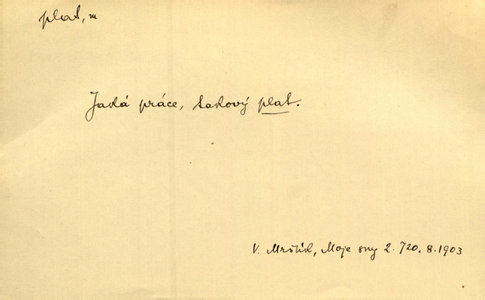 plat, m
Jaká práce, takový plat.
V. Mrštík, Moje sny 2. 720. 8. 1903